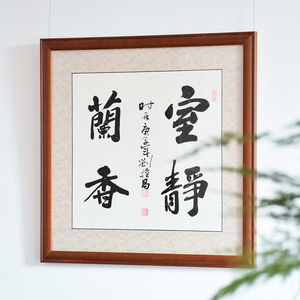 室靜
蘭香
时在庚子年